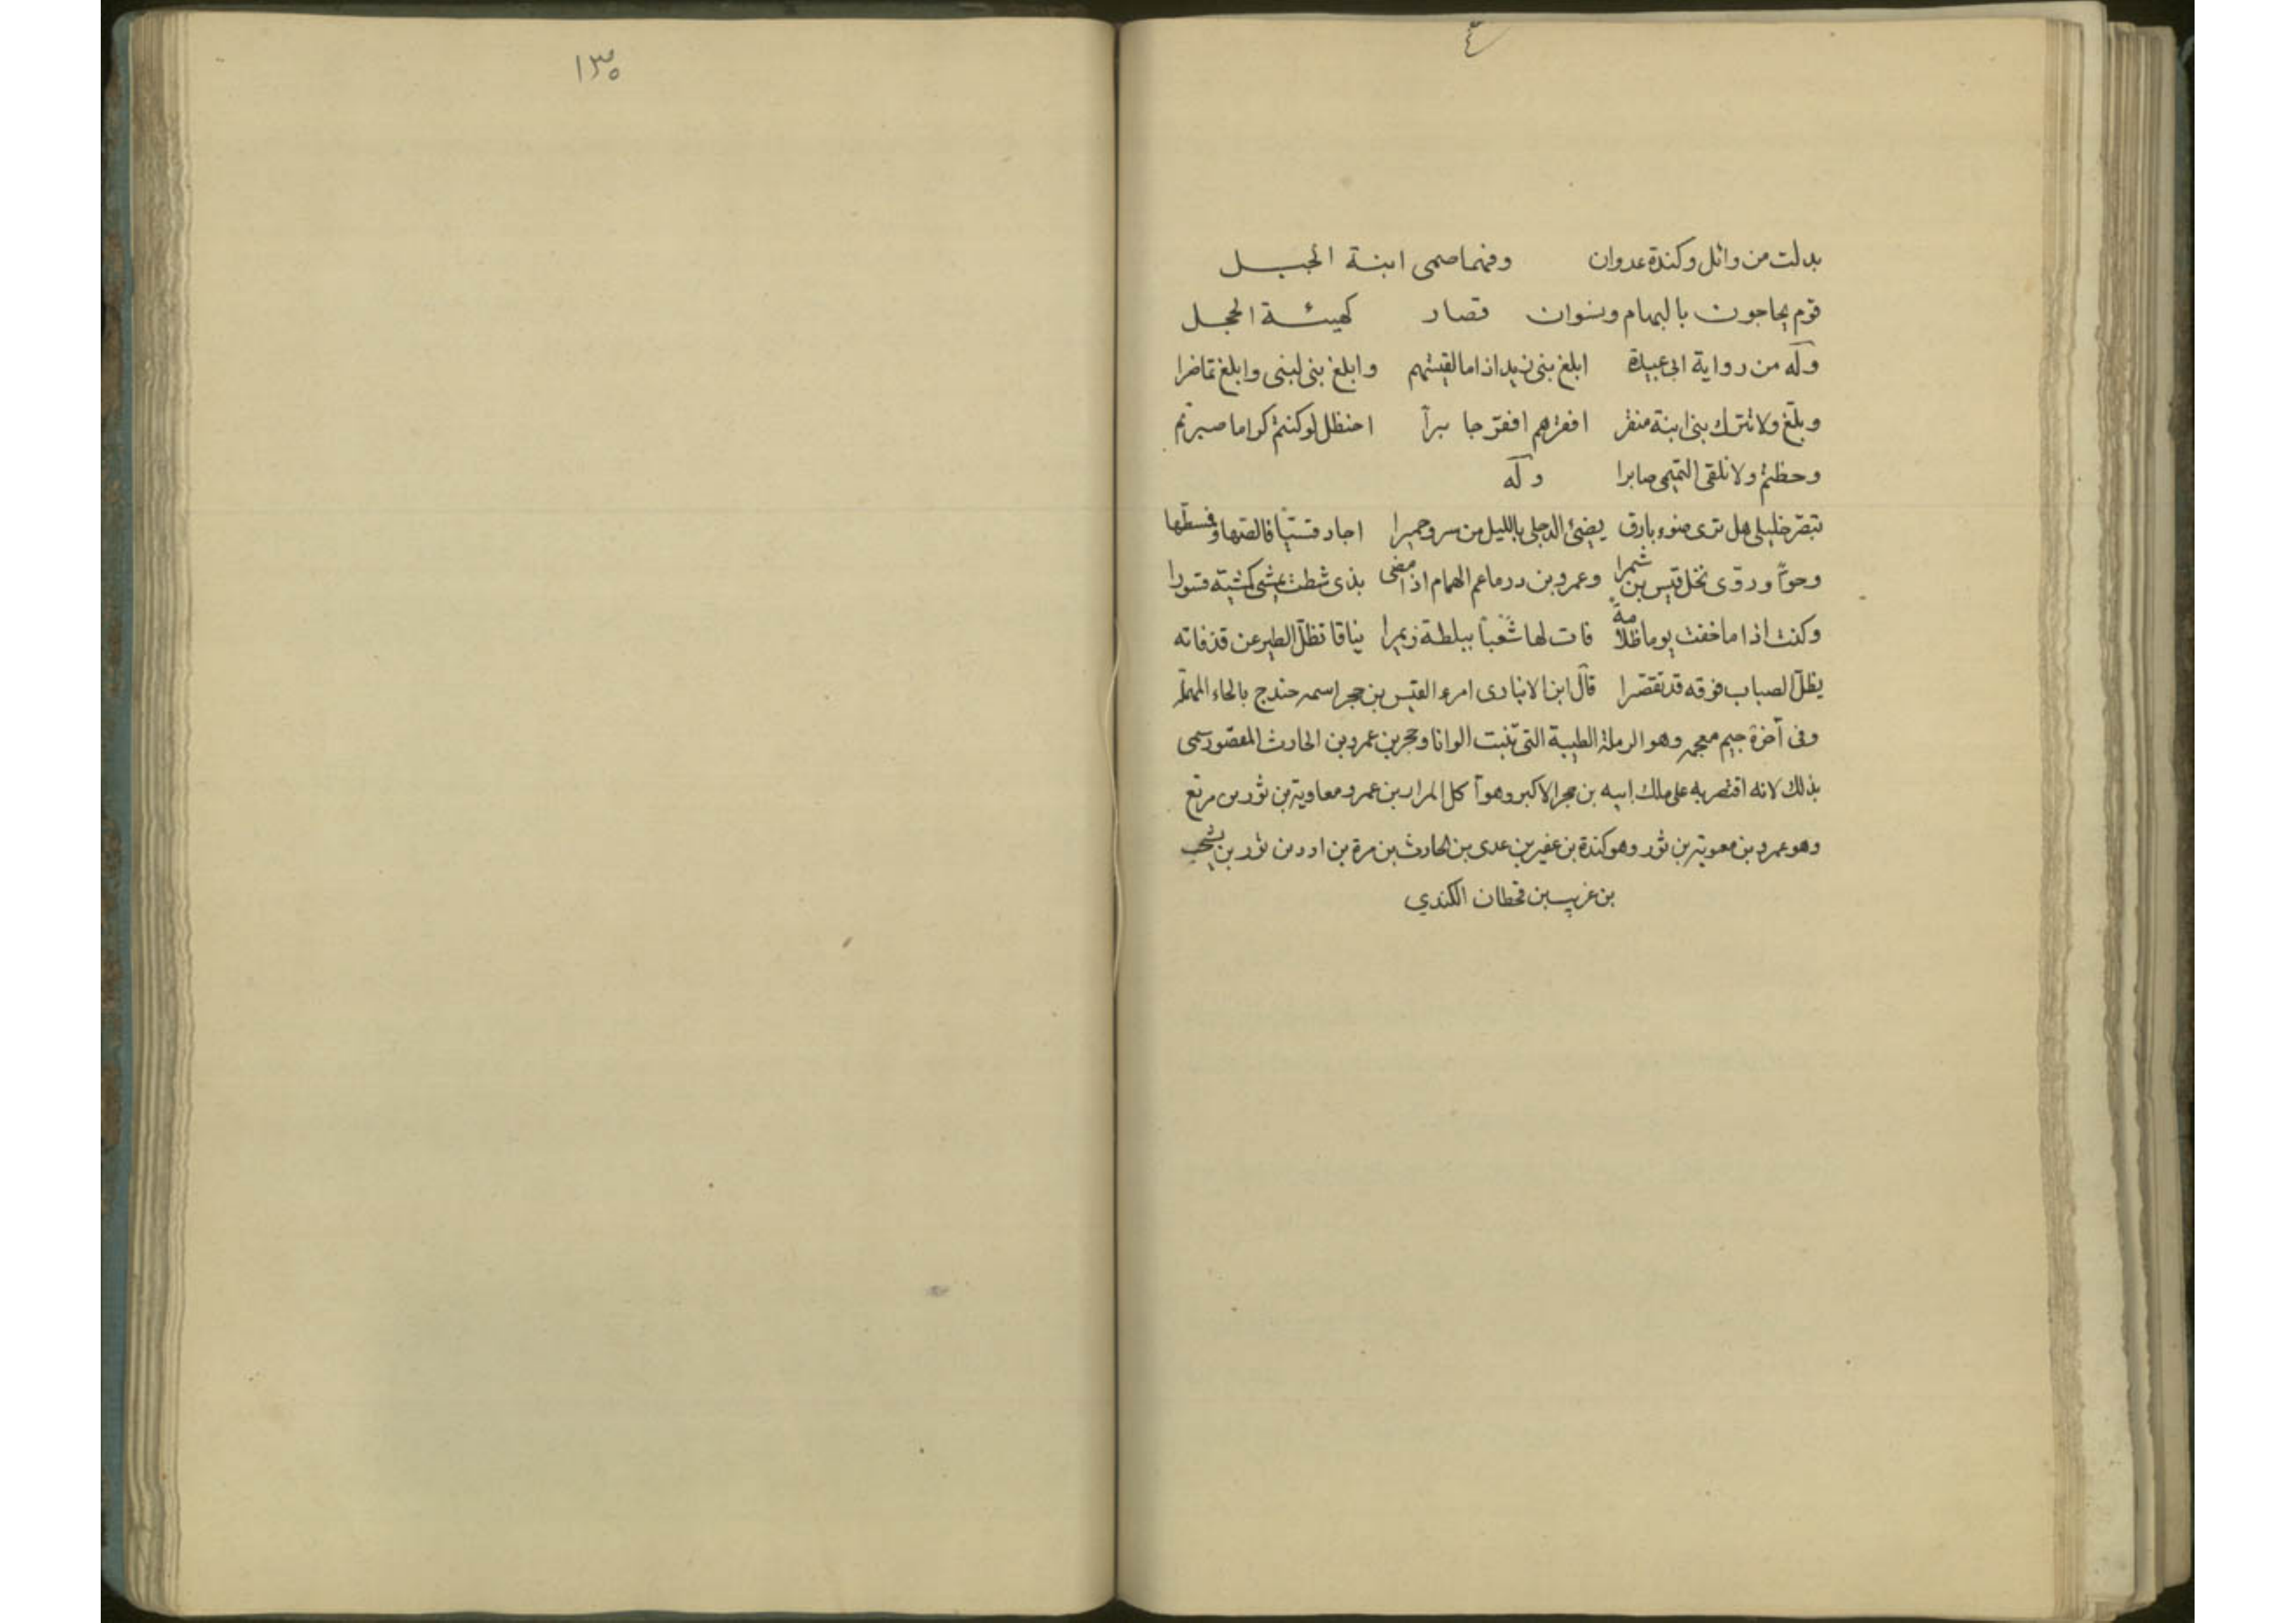 بدلت من وائل وكندة عدوان وفهما صمى ابنة الجبل
قوم يحاجون بالبهام ونسوان قصار كهيئة الحجل
وله من رواية ابى عبيدة ابلغ بنى زيد اذا ما لقيتهم وابلغ بنى لبنى وابلغ تماضرا
وبلّغ ولا تترك بنى ابنة منقر افقرهم افقرّ جا برأ احنظل لو كنتم كراما صبرتم
وحظتم ولا تلقى التميمى صابرا وله
تبصّر خليلى هل ترى ضوء بارق يضئ الدجى بالليل من سرو حميرا اجاد قسيّا فالصها وفسطّها
وحوّاً وروّى نخل قيس بن شمرا وعمرو بن درما عم الهمام اذا مضى بذى شطت يمشى كمشيته قسورا
وكنت اذا ما خفت يوما ظلامة فان لها شعْباً ببلطة زيمرا نيافا تظلّ الطير عن قذفاته
يظلّ الصباب فوقه قد تقصّرا قال ابن الانبارى امرء القيس بن حجر اسمه حندج بالحاء المهملة
وفى آخرة جيم معجمه وهو الرملة الطيبة التى تنبت الوانا وحجر بن عمرو بن الحارث المقصور سمى
بذلك لانه اقتصر به على ملك ابيه بن حجر الاكبر وهو آكل المرار بن عمرو معاوية بن ثور بن مرتع
وهو عمرو بن معوية بن ثور وهو كندة بن عفير بن عدى بن الحارث بن مرة بن ادد بن ثور بن يشجب
بن عريب بن قحطان الكندي
١٣٥